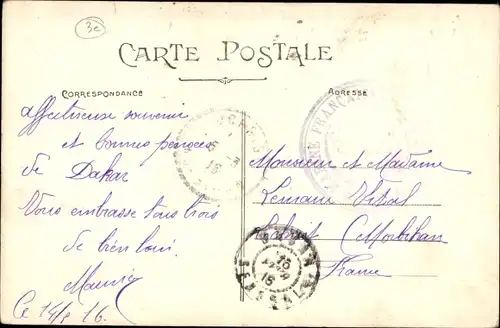 3e
CARTE POSTALE
CORRESPONDANCE
ADRESSE
affectueuse souvenir
et bonnes pensées
de Dakar
Vous embrasse tous trois
de bien loin.
Maurice
Ce 14/5 16.
Monsieur et Madame
Vidal
Morbihan
France
FRANÇAISE